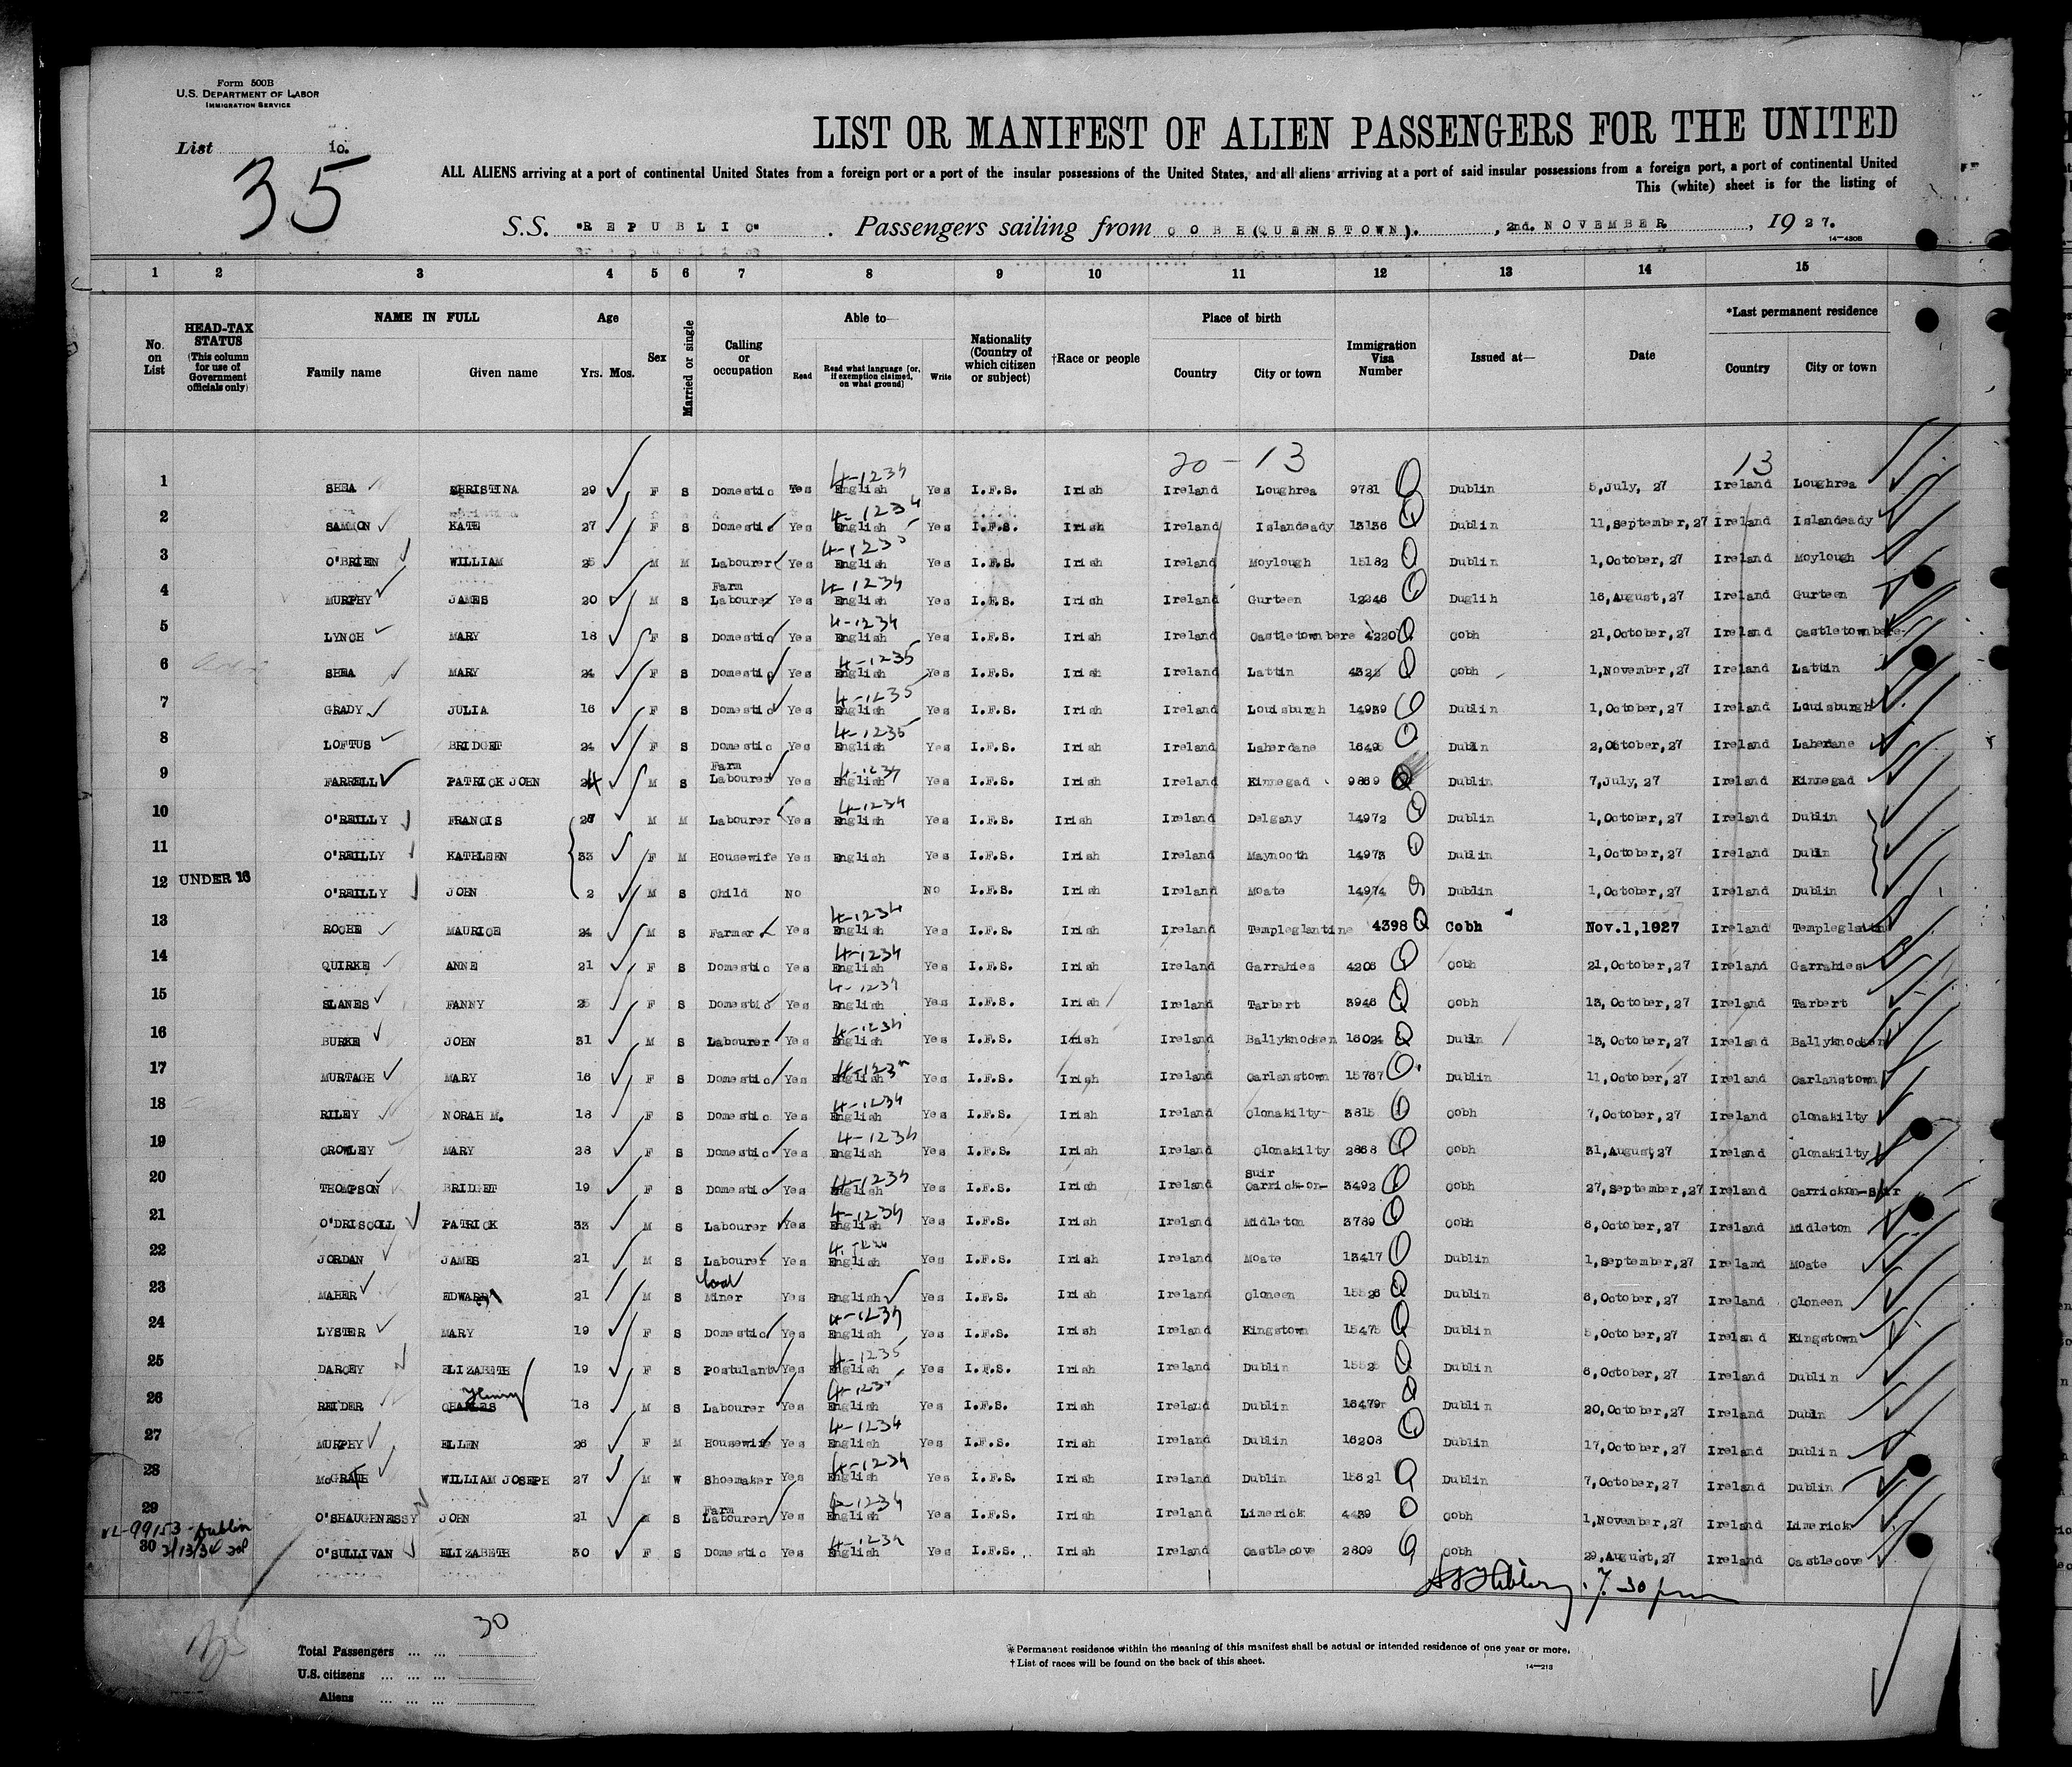 Form 500B
U.S. DEPARTMENT OF LABOR
IMMIGRATION SERVICE
List 10.
35
LIST OR MANIFEST OF ALIEN PASSENGERS FOR THE UNITED
ALL ALIENS arriving at a port of continental United States from a foreign port or a port of the insular possessions of the United States, and all aliens arriving at a port of said insular possessions from a foreign port, a port of continental United
This (white) sheet is for the listing of
S.S. "REPUBLIC" . Passengers sailing from COBH (QUEENSTOWN). , 2nd. NOVEMBER , 1927.
1 2 3 4 5 6 7 8 9 10 11 12 13 14 15
No. on List HEAD-TAX STATUS (This column for use of Government officials only) NAME IN FULL Family name Given name Age Yrs. Mos. Sex Married or single Calling or occupation Able to— Read Read what language [or, if exemption claimed, on what ground] Write Nationality (Country of which citizen or subject) †Race or people Place of birth Country City or town Immigration Visa Number Issued at— Date *Last permanent residence Country City or town
20-13 13
1 SHEA CHRISTINA 29 F S Domestic Yes 4-1234 English Yes I.F.S. Irish Ireland Loughrea 9781 Dublin 5,July, 27 Ireland Loughrea
2 SAMMON KATE 27 F S Domestic Yes 4-1234 English Yes I.F.S. Irish Ireland Islandeady 13136 Dublin 11,September,27 Ireland Islandeady
3 O'BRIEN WILLIAM 25 M M Labourer Yes English Yes I.F.S. Irish Ireland Moylough 15182 Dublin 1,October, 27 Ireland Moylough
4 MURPHY JAMES 20 M S Farm Labourer Yes 4-1234 English Yes I.F.S. Irish Ireland Gurteen 12246 Duglih 16,August,27 Ireland Gurteen
5 LYNCH MARY 18 F S Domestic Yes 4-1234 English Yes I.F.S. Irish Ireland Castletownbere 4220 Cobh 21,October,27 Ireland Castletownbere
6 SHEA MARY 24 F S Domestic Yes 4-1235 English Yes I.F.S. Irish Ireland Lattin Cobh 1,November,27 Ireland Lattin
7 GRADY JULIA 16 F S Domestic Yes 4-1235 English Yes I.F.S. Irish Ireland Louisburgh 14939 Dublin 1,October,27 Ireland Louisburgh
8 LOFTUS BRIDGET 24 F S Domestic Yes 4-1235 English Yes I.F.S. Irish Ireland Laherdane 1649 Dublin 2,October,27 Ireland Laherdane
9 FARRELL PATRICK JOHN 24 M S Farm Labourer Yes 4-1234 English Yes I.F.S. Irish Ireland Kinnegad 9869 Dublin 7,July,27 Ireland Kinnegad
10 O'REILLY FRANCIS 27 M M Labourer Yes 4-1234 English Yes I.F.S. Irish Ireland Delgany 14972 Dublin 1,October,27 Ireland Dublin
11 O'REILLY KATHLEEN 33 F M Housewife Yes English Yes I.F.S. Irish Ireland Maynooth 14973 Dublin 1,October,27 Ireland Dublin
12 UNDER 16 O'REILLY JOHN 2 M S Child No No I.F.S. Irish Ireland Moate 14974 Dublin 1,October,27 Ireland Dublin
13 ROCHE MAURICE 24 M S Farmer Yes 4-1234 English Yes I.F.S. Irish Ireland Templeglantine 4398 Cobh Nov.1,1927 Ireland Templeglantine
14 QUIRKE ANNE 21 F S Domestic Yes 4-1234 English Yes I.F.S. Irish Ireland Garrahies 4206 Cobh 21,October,27 Ireland Garrahies
15 SLANES FANNY 25 F S Domestic Yes 4-1234 English Yes I.F.S. Irish Ireland Tarbert 3946 Cobh 13,October,27 Ireland Tarbert
16 BURKE JOHN 31 M S Labourer Yes 4-1234 English Yes I.F.S. Irish Ireland Ballyknocken 16024 Dublin 13,October,27 Ireland Ballyknocken
17 MURTAGH MARY 18 F S Domestic Yes English Yes I.F.S. Irish Ireland Carlanstown 15767 Dublin 11,October,27 Ireland Carlanstown
18 RILEY NORAH M. 18 F S Domestic Yes 4-1234 English Yes I.F.S. Irish Ireland Clonakilty 3815 Cobh 7,October,27 Ireland Clonakilty
19 CROWLEY MARY 28 F S Domestic Yes 4-1234 English Yes I.F.S. Irish Ireland Clonakilty 2868 Cobh 31,August,27 Ireland Clonakilty
20 THOMPSON BRIDGET 19 F S Domestic Yes 4-1234 English Yes I.F.S. Irish Ireland Carrick-on-Suir 3492 Cobh 27,September,27 Ireland Carrick-on-Suir
21 O'DRISCOLL PATRICK 33 M S Labourer Yes 4-1234 English Yes I.F.S. Irish Ireland Midleton 3789 Cobh 6,October,27 Ireland Midleton
22 JORDAN JAMES 21 M S Labourer Yes English Yes I.F.S. Irish Ireland Moate 13417 Dublin 1,September,27 Ireland Moate
23 MAHER EDWARD 21 M S Coal Miner Yes English Yes I.F.S. Irish Ireland Cloneen 15526 Dublin 6,October,27 Ireland Cloneen
24 LYSTER MARY 19 F S Domestic Yes 4-1234 English Yes I.F.S. Irish Ireland Kingstown 15475 Dublin 5,October,27 Ireland Kingstown
25 DARCEY ELIZABETH 19 F S Postulant Yes 4-1235 English Yes I.F.S. Irish Ireland Dublin 15525 Dublin 6,October,27 Ireland Dublin
26 REIDER Henry CHARLES 18 M S Labourer Yes English Yes I.F.S. Irish Ireland Dublin 16479 Dublin 20,October,27 Ireland Dublin
27 MURPHY ELLEN 26 F M Housewife Yes 4-1234 English Yes I.F.S. Irish Ireland Dublin 16208 Dublin 17,October,27 Ireland Dublin
28 McGRATH WILLIAM JOSEPH 27 M W Shoemaker Yes 4-1234 English Yes I.F.S. Irish Ireland Dublin 15621 Dublin 7,October,27 Ireland Dublin
29 O'SHAUGHNESSY JOHN 21 M S Farm Labourer Yes 4-1234 English Yes I.F.S. Irish Ireland Limerick 4439 Cobh 1,November,27 Ireland Limerick
VL-99153-Dublin
30 3/13/34 O'SULLIVAN ELIZABETH 30 F S Domestic Yes 4-1234 English Yes I.F.S. Irish Ireland Castlecove 2809 Cobh 29,August,27 Ireland Castlecove
7.30 pm
30
Total Passengers ... ...
U.S. citizens ... ... ...
Aliens ... ... ...
*Permanent residence within the meaning of this manifest shall be actual or intended residence of one year or more.
†List of races will be found on the back of this sheet.
14—213